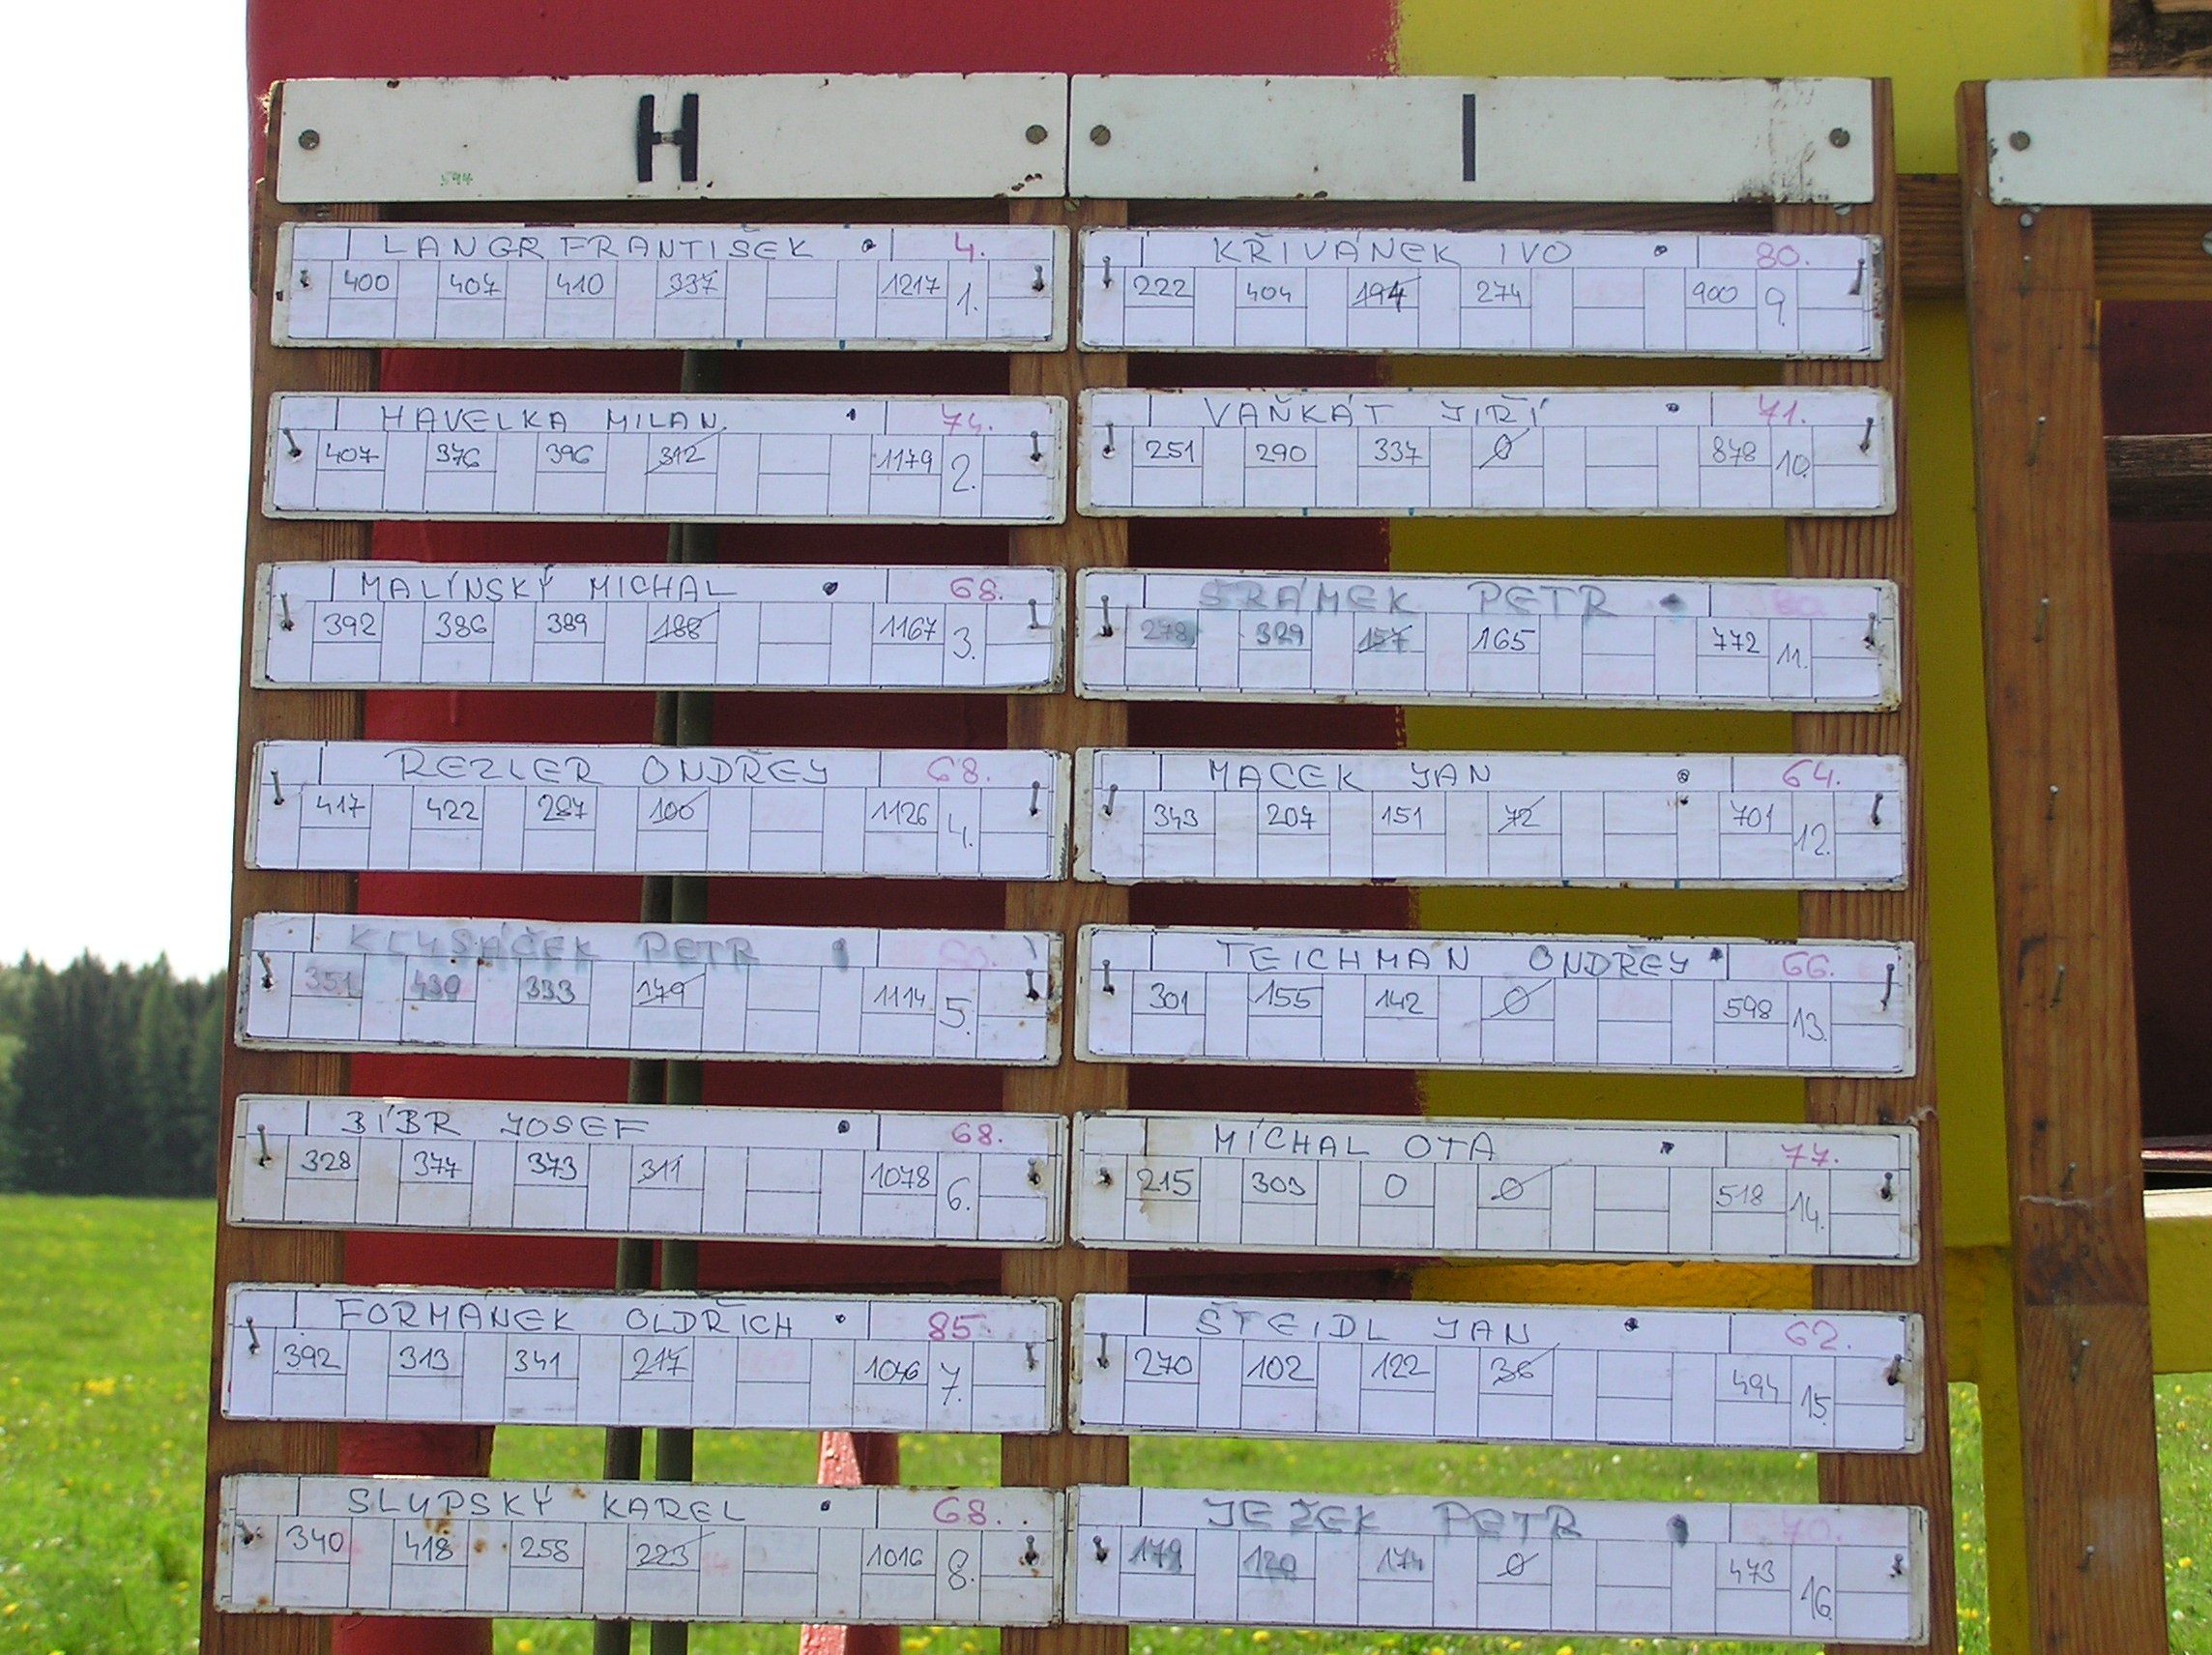 H
LANGR FRANTIŠEK 4.
400 407 410 337 1217 1.
HAVELKA MILAN 74.
407 376 396 312 1179 2.
MALÍNSKÝ MICHAL 68.
392 386 389 188 1167 3.
REZLER ONDŘEJ 68.
417 422 287 100 1126 4.
KLYSÁČEK PETR
351 430 333 179 1114 5.
BÍBR JOSEF 68.
328 377 373 311 1078 6.
FORMANEK OLDŘICH 85.
392 313 341 217 1046 7.
SLUPSKÝ KAREL 68.
340 418 258 223 1016 8.
I
KŘIVÁNEK IVO 80.
222 404 194 274 900 9.
VAŇKÁT JIŘÍ 71.
251 290 337 0 878 10.
ŠRÁMEK PETR
278 329 157 165 772 11.
MACEK JAN 64.
343 207 151 72 701 12.
TEICHMAN ONDŘEJ 66.
301 155 142 0 598 13.
MÍCHAL OTA 77.
215 303 0 0 518 14.
ŠTEIDL JAN 62.
270 102 122 36 494 15.
JEŽEK PETR 70.
179 120 174 0 473 16.